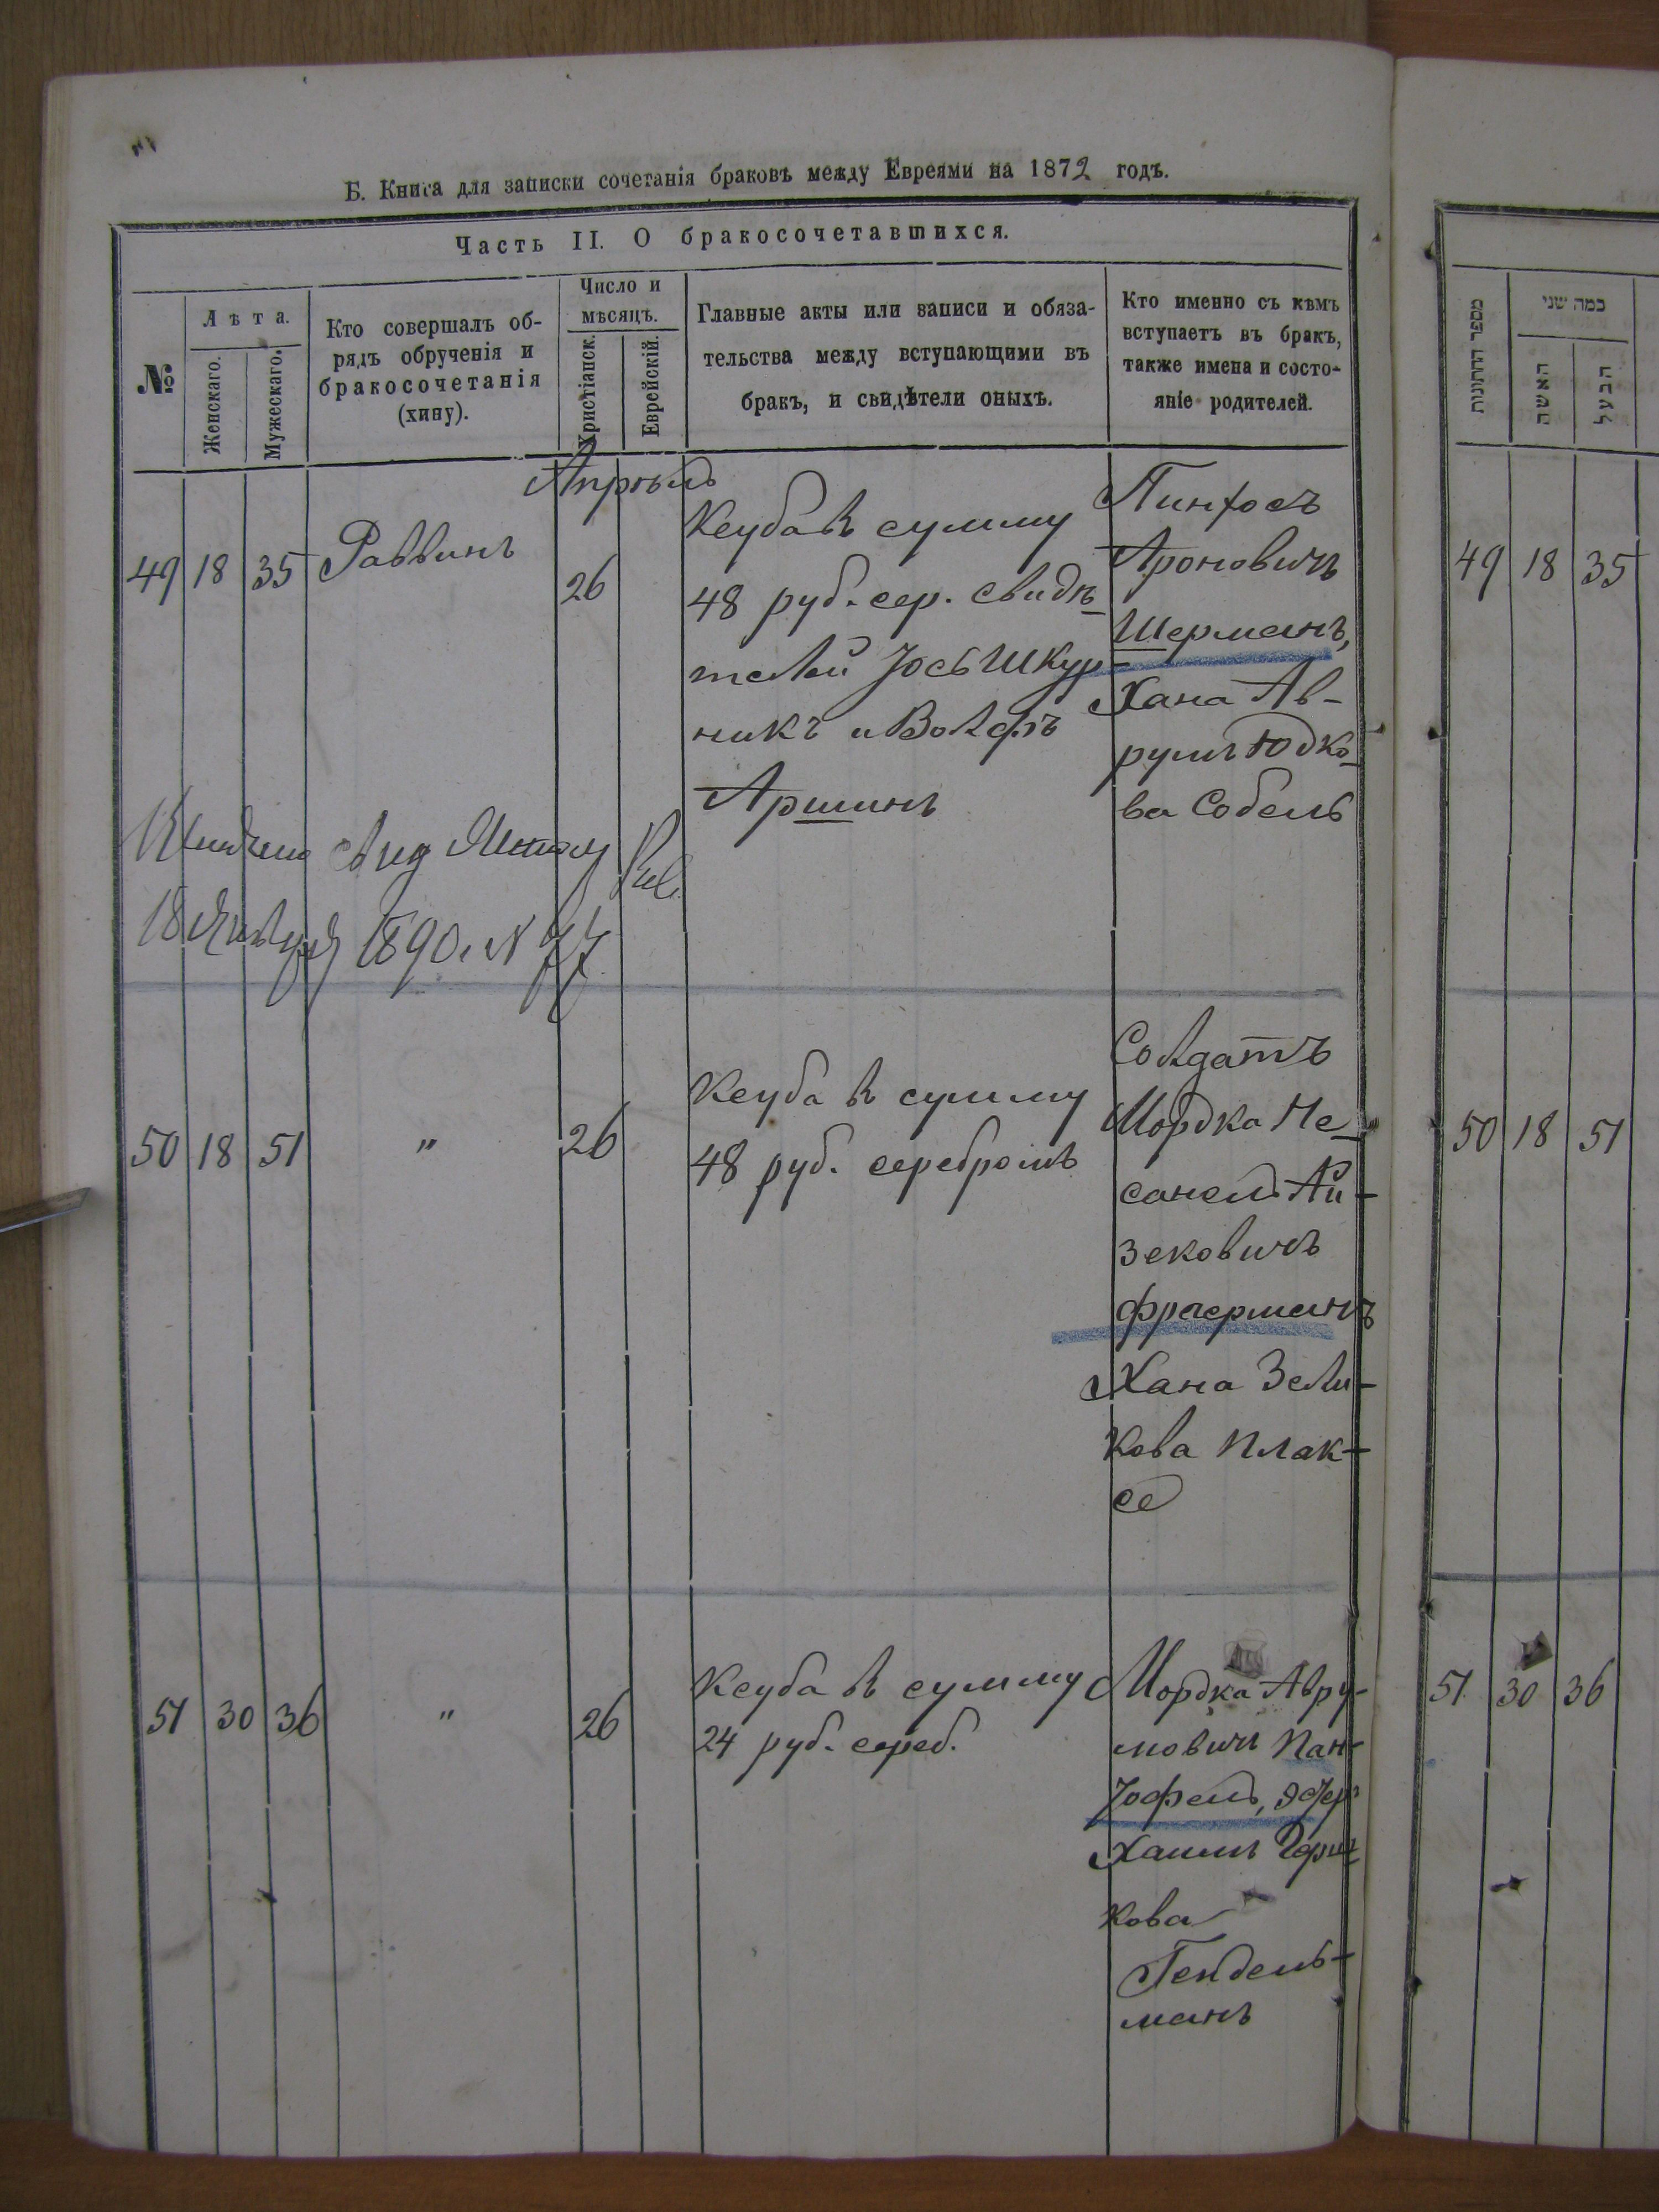 Б. Книга для записки сочетанія браковъ между Евреями на 1872 годъ.
Часть II. О бракосочетавшихся.
№
Лѣта.
Женскаго.
Мужескаго.
Кто совершалъ об-
рядъ обрученія и
бракосочетанія
(хипу).
Число и
мѣсяцъ.
Христіанск.
Еврейскій.
Главные акты или записи и обяза-
тельства между вступающими въ
бракъ, и свидѣтели оныхъ.
Кто именно съ кѣмъ
вступаетъ въ бракъ,
также имена и состо-
яніе родителей.
Апрѣль
49 18 35 Раввинъ 26
Кеуба въ сумму
48 руб. сер. свидѣ
телей Іось Шкур
никъ и Волфъ
Аршинъ
Пинхосъ
Ароновичъ
Шерманъ,
Хана Ав-
румъ Юдко
ва Собель
18 Января 1890. N 77
50 18 51 " 26
Кеуба въ сумму
48 руб. серебромъ
Солдатъ
Мордка Не
санель Ай-
зековичъ
Фраерманъ
Хана Зели-
кова Плак-
се
51 30 36 " 26
Кеуба въ сумму
24 руб. сереб.
Мордка Авру-
мовичъ Пан-
тофель, Эстер
Хаимъ Герш
кова
Гендель-
манъ
מספר החתונות
כמה שני
האשה
הבעל
49 18 35
50 18 51
51 30 36